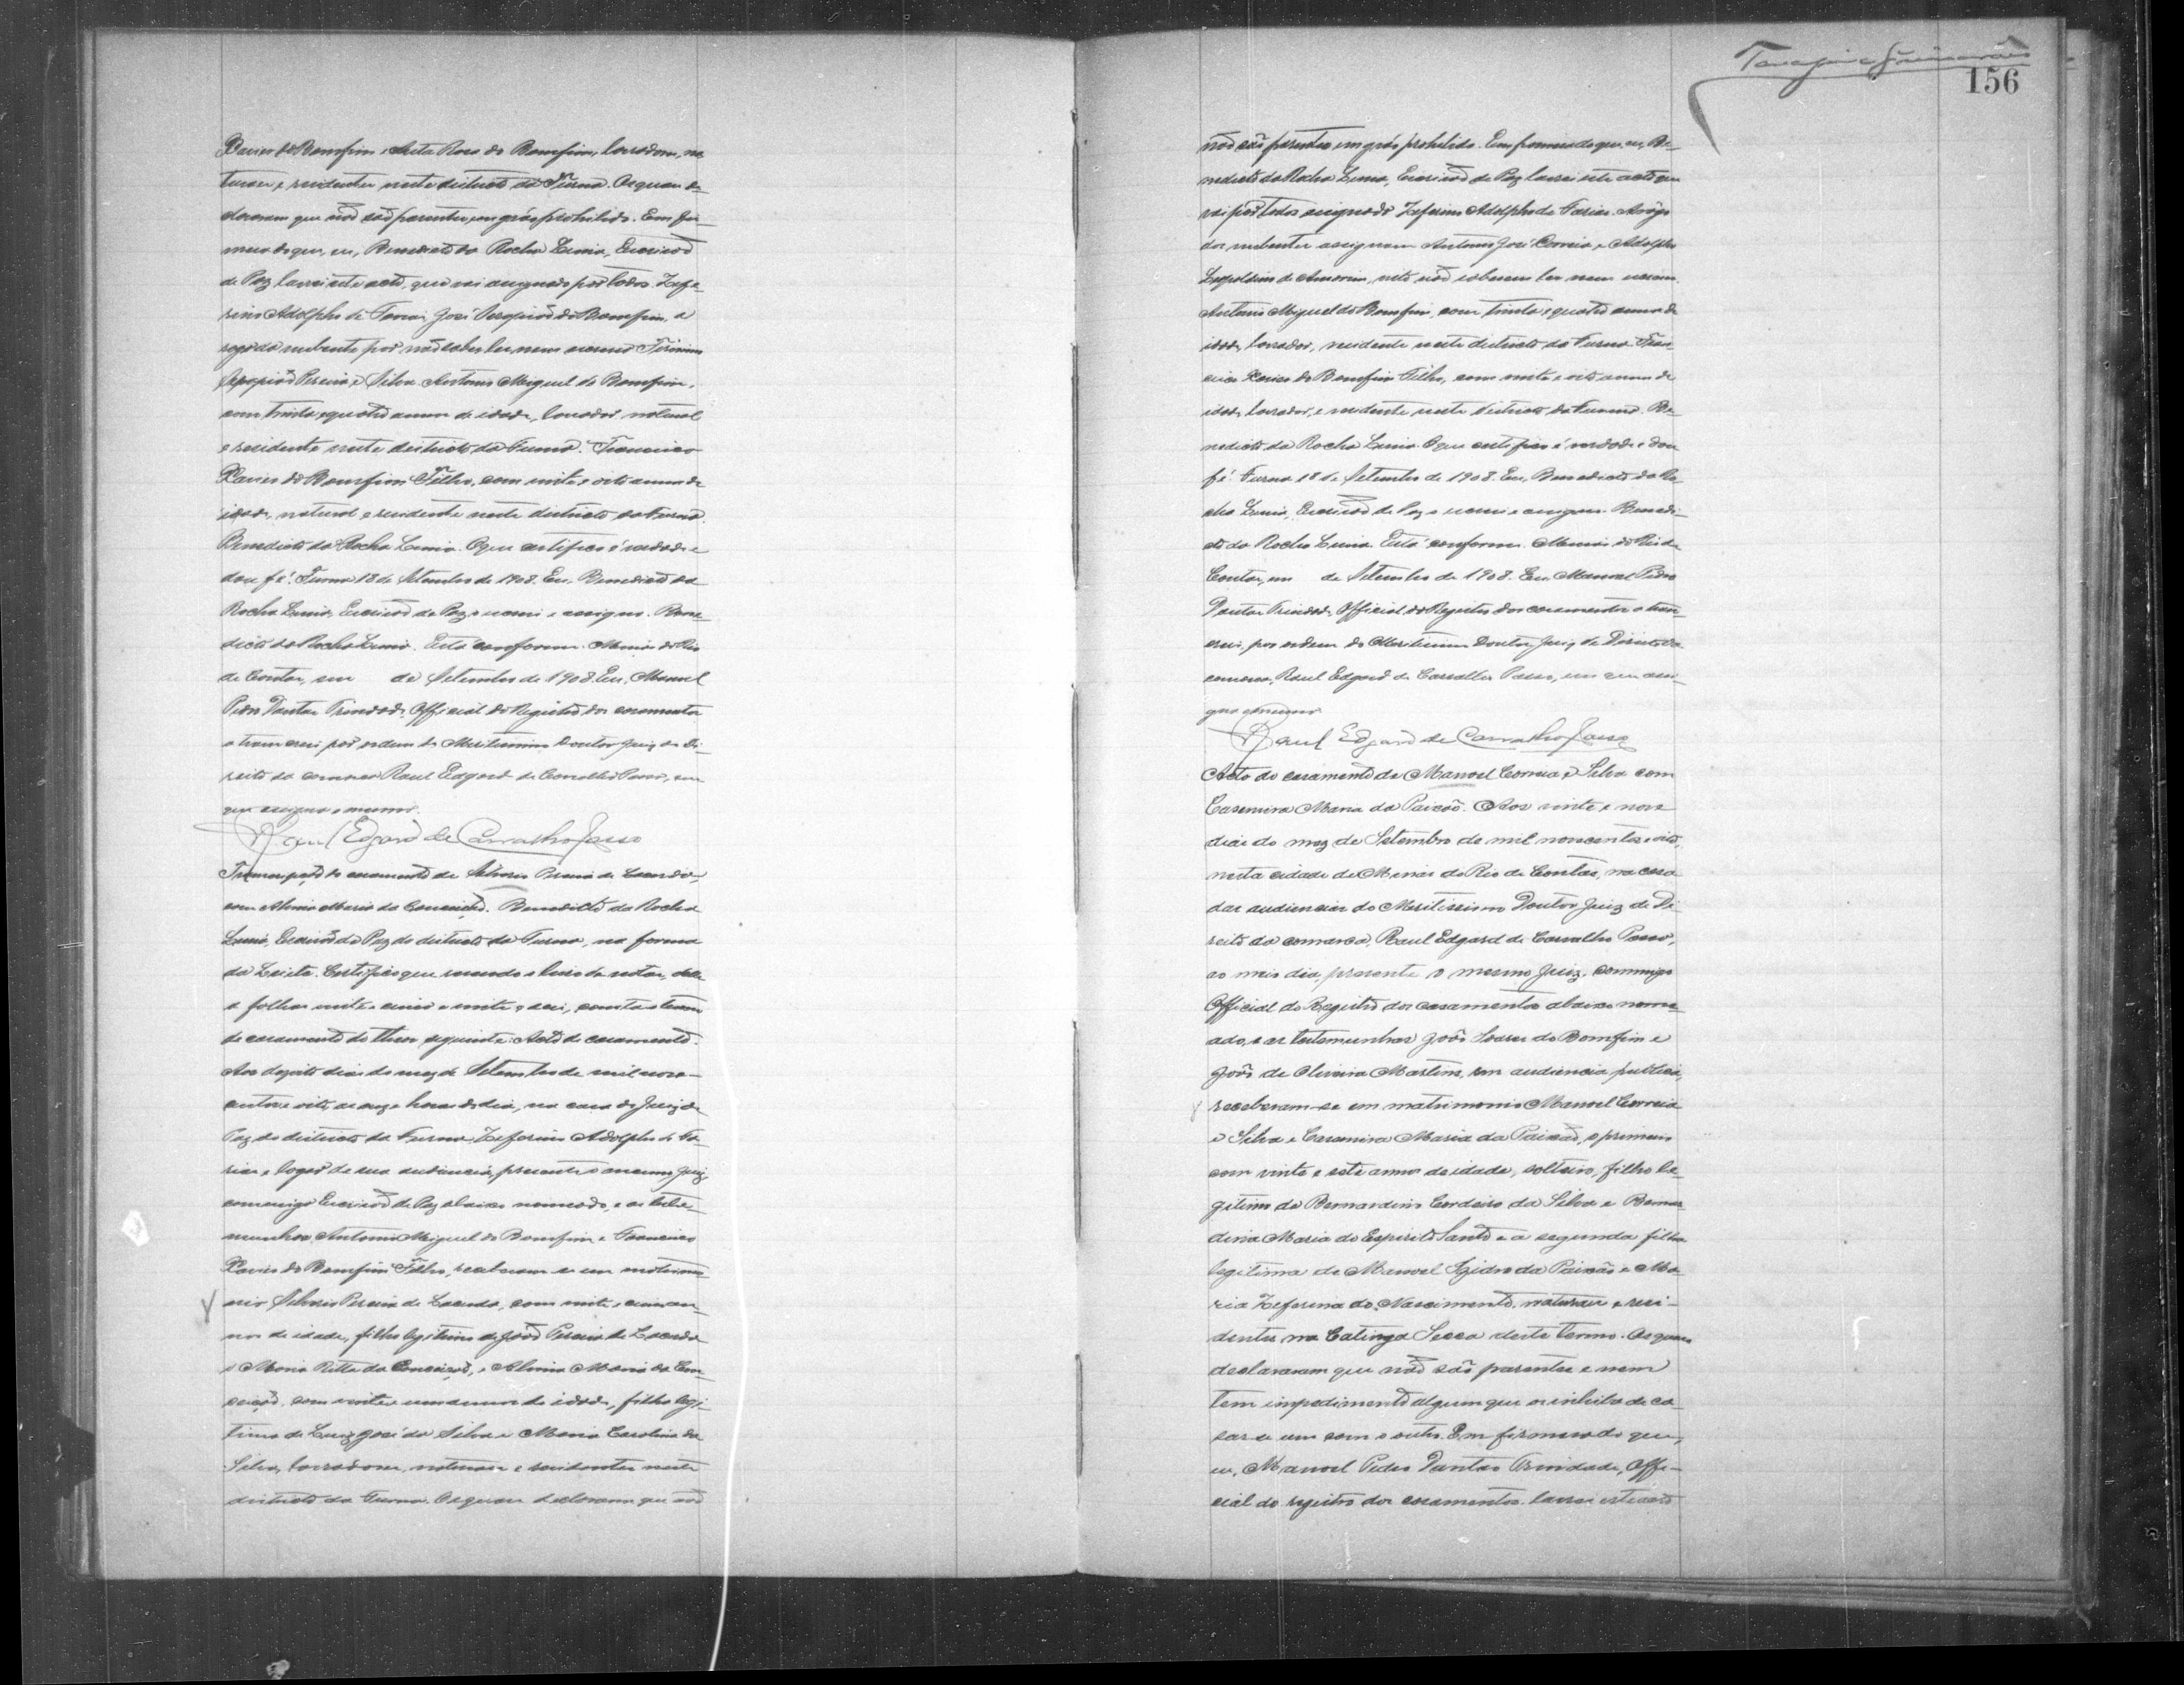 Xavier do Bomfim e Anta Rosa do Bomfim, lavradores, na-
turaes e residentes neste districto da Furna. Os quaes de-
clararam que não são parentes em gráo prohibido. Em fir-
mesa do que, eu, Benedicto da Rocha Lima, Escrivão
de Paz lavrei este acto, que vai assignado por todos. Zefe-
rino Adolpho de Farias, José do Bomfim, a
rogo da nubente por não saber ler nem escrever Firmino
Pereira e Silva. Antonio Miguel do Bomfim,
com trinta e quatro annos de idade, lavrador, natural
e residente neste districto da Furna. Francisco
Xavier do Bomfim Filho, com vinte e oito annos de
idade, natural e residente neste districto da Furna.
Benedicto da Rocha Lima. O que certifico é verdade e
dou fé. Furna 18 de Setembro de 1908. Eu, Benedicto da
Rocha Lima, Escrivão de Paz o escrevi e assigno. Bene-
dicto da Rocha Lima. Está conforme. Minas do Rio
de Contas, em de Setembro de 1908. Eu, Manoel
Pedro Dantas Trindade, Official do Registro dos casamentos
o transcrevi por ordem do Meritissimo Doutor Juiz de Di-
reito da comarca Raul Edgard de Carvalho Passo, em
que assigna o mesmo.
Raul Edgard de Carvalho Passo
Transcripção do casamento de Silverio Pereira de Lacerda,
com Almira Maria da Conceição. Benedicto da Rocha
Lima, Escrivão de Paz do districto da Furna, na forma
da Lei etc. Certifico que revendo o livro de notas, delle
a folhas vinte e cinco e vinte e seis, consta o termo
de casamento do theor seguinte: Acto de casamento.
Aos dezoito dias do mez de Setembro de mil nove-
centos e oito, as onze horas do dia, na casa do Juiz de
Paz do districto da Furna, Zeferino Adolpho de Fa-
rias, e logar de sua audiencia, presente o mesmo Juiz,
commigo Escrivão de Paz abaixo nomeado, e as teste-
munhas Antonio Miguel do Bomfim e Francisco
Xavier do Bomfim Filho, receberam-se em matrimo-
nio Silverio Pereira de Lacerda, com vinte e cinco an-
nos de idade, filho legitimo de João Pereira de Lacerda
e Maria Ritta da Conceição, e Almira Maria da Con-
ceição, com vinte e um annos de idade, filha legi-
tima de Luiz José da Silva e Maria Carolina da
Silva, lavradores, naturaes e residentes neste
districto da Furna. Os quaes declararam que não
156
não são parentes em gráo prohibido. Em firmesa do que, eu, Be-
nedicto da Rocha Lima, Escrivão de Paz lavrei este acto que
vai por todos assignado Zeferino Adolpho de Farias. A rogo
dos nubentes assignam Antonio José Correia e Adolpho
Leopoldino de Amorim, visto não saberem ler nem escrever.
Antonio Miguel do Bomfim, com trinta e quatro annos de
idade, lavrador, residente neste districto da Furna. Fran-
cisco Xavier do Bomfim Filho, com vinte e oito annos de
idade, lavrador, e residente neste districto da Furna. Be-
nedicto da Rocha Lima. O que certifico é verdade e dou
fé. Furna 18 de Setembro de 1908. Eu, Benedicto da Ro-
cha Lima, Escrivão de Paz o escrevi e assigno. Benedi-
cto da Rocha Lima. Está conforme. Minas do Rio de
Contas, em de Setembro de 1908. Eu Manoel Pedro
Dantas Trindade, Official do Registro dos casamentos o trans-
crevi, por ordem do Meritissimo Doutor Juiz de Direito da
comarca, Raul Edgard de Carvalho Passo, em que assi-
gna o mesmo.
Raul Edgard de Carvalho Passo
Acto do casamento de Manoel Correia e Silva com
Casemira Maria da Paixão. Aos vinte e nove
dias do mez de Setembro de mil novecentos e oito,
nesta cidade de Minas do Rio de Contas, na casa
das audiencias do Meritissimo Doutor Juiz de Di-
reito da comarca, Raul Edgard de Carvalho Passo,
ao meio dia, presente o mesmo Juiz, commigo
Official do Registro dos casamentos abaixo nome-
ado, e as testemunhas João Soares do Bomfim e
João de Oliveira Martins, em audiencia publica,
receberam-se em matrimonio Manoel Correia
e Silva e Casemira Maria da Paixão, o primeiro
com vinte e sete annos de idade, solteiro, filho le-
gitimo de Bernardino Cordeiro da Silva e Bernar-
dina Maria do Espirito Santo e a segunda filha
legitima de Manoel Izidro da Paixão e Ma-
ria Zeferina do Nascimento, naturaes e resi-
dentes na Catinga Secca deste termo. Os quaes
declararam que não são parentes e nem
tem impedimento algum que os inhiba de ca-
sar-se um com o outro. Em firmesa do que,
eu, Manoel Pedro Dantas Trindade, Offi-
cial do registro dos casamentos lavrei este acto